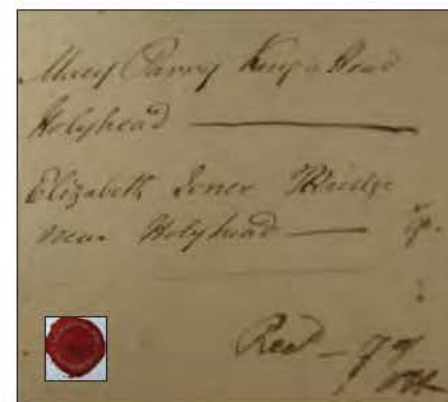 Mary Parry King's Head
Holyhead
Elizabeth Jones
near Holyhead
Recd